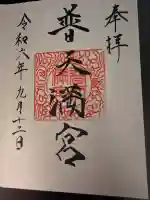 奉拝
普天満宮
令和六年九月十二日